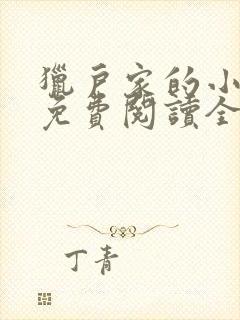 獵戶家的小
免費閱讀全
丁青